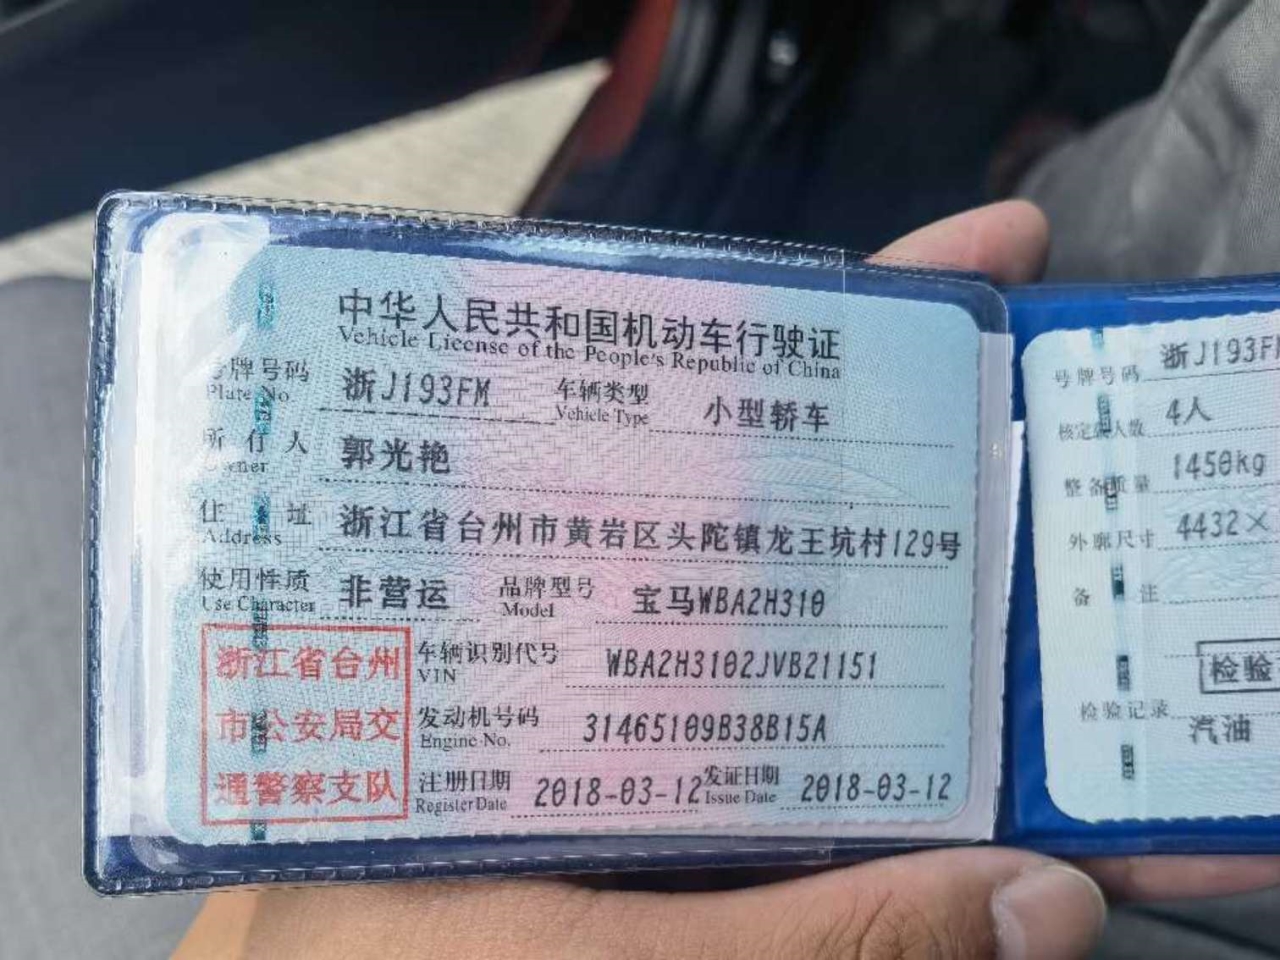 中华人民共和国机动车行驶证
Vehicle License of the People's Republic of China
号牌号码 浙J193FM 车辆类型 小型轿车
Plate No. Vehicle Type
所有人 郭光艳
Owner
住址 浙江省台州市黄岩区头陀镇龙王坑村129号
Address
使用性质 非营运 品牌型号 宝马WBA2H310
Use Character Model
浙江省台州
市公安局交
通警察支队
车辆识别代号 WBA2H3102JVB21151
VIN
发动机号码 31465109B38B15A
Engine No.
注册日期 2018-03-12 发证日期 2018-03-12
Register Date Issue Date
号牌号码 浙J193FM
核定载人数 4人
整备质量 1450kg
外廓尺寸 4432×
备注
检验
检验记录
汽油